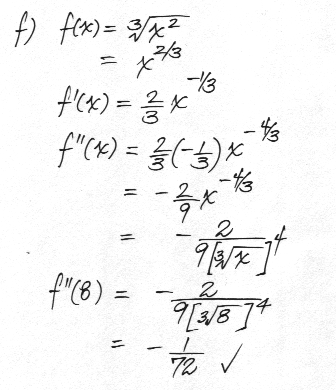 f) f(x) = ∛x²
= x^2/3
f'(x) = 2/3 x^-1/3
f''(x) = 2/3(-1/3)x^-4/3
= -2/9 x^-4/3
= - 2/9[∛x]^4
f''(8) = - 2/9[∛8]^4
= - 1/72 ✓